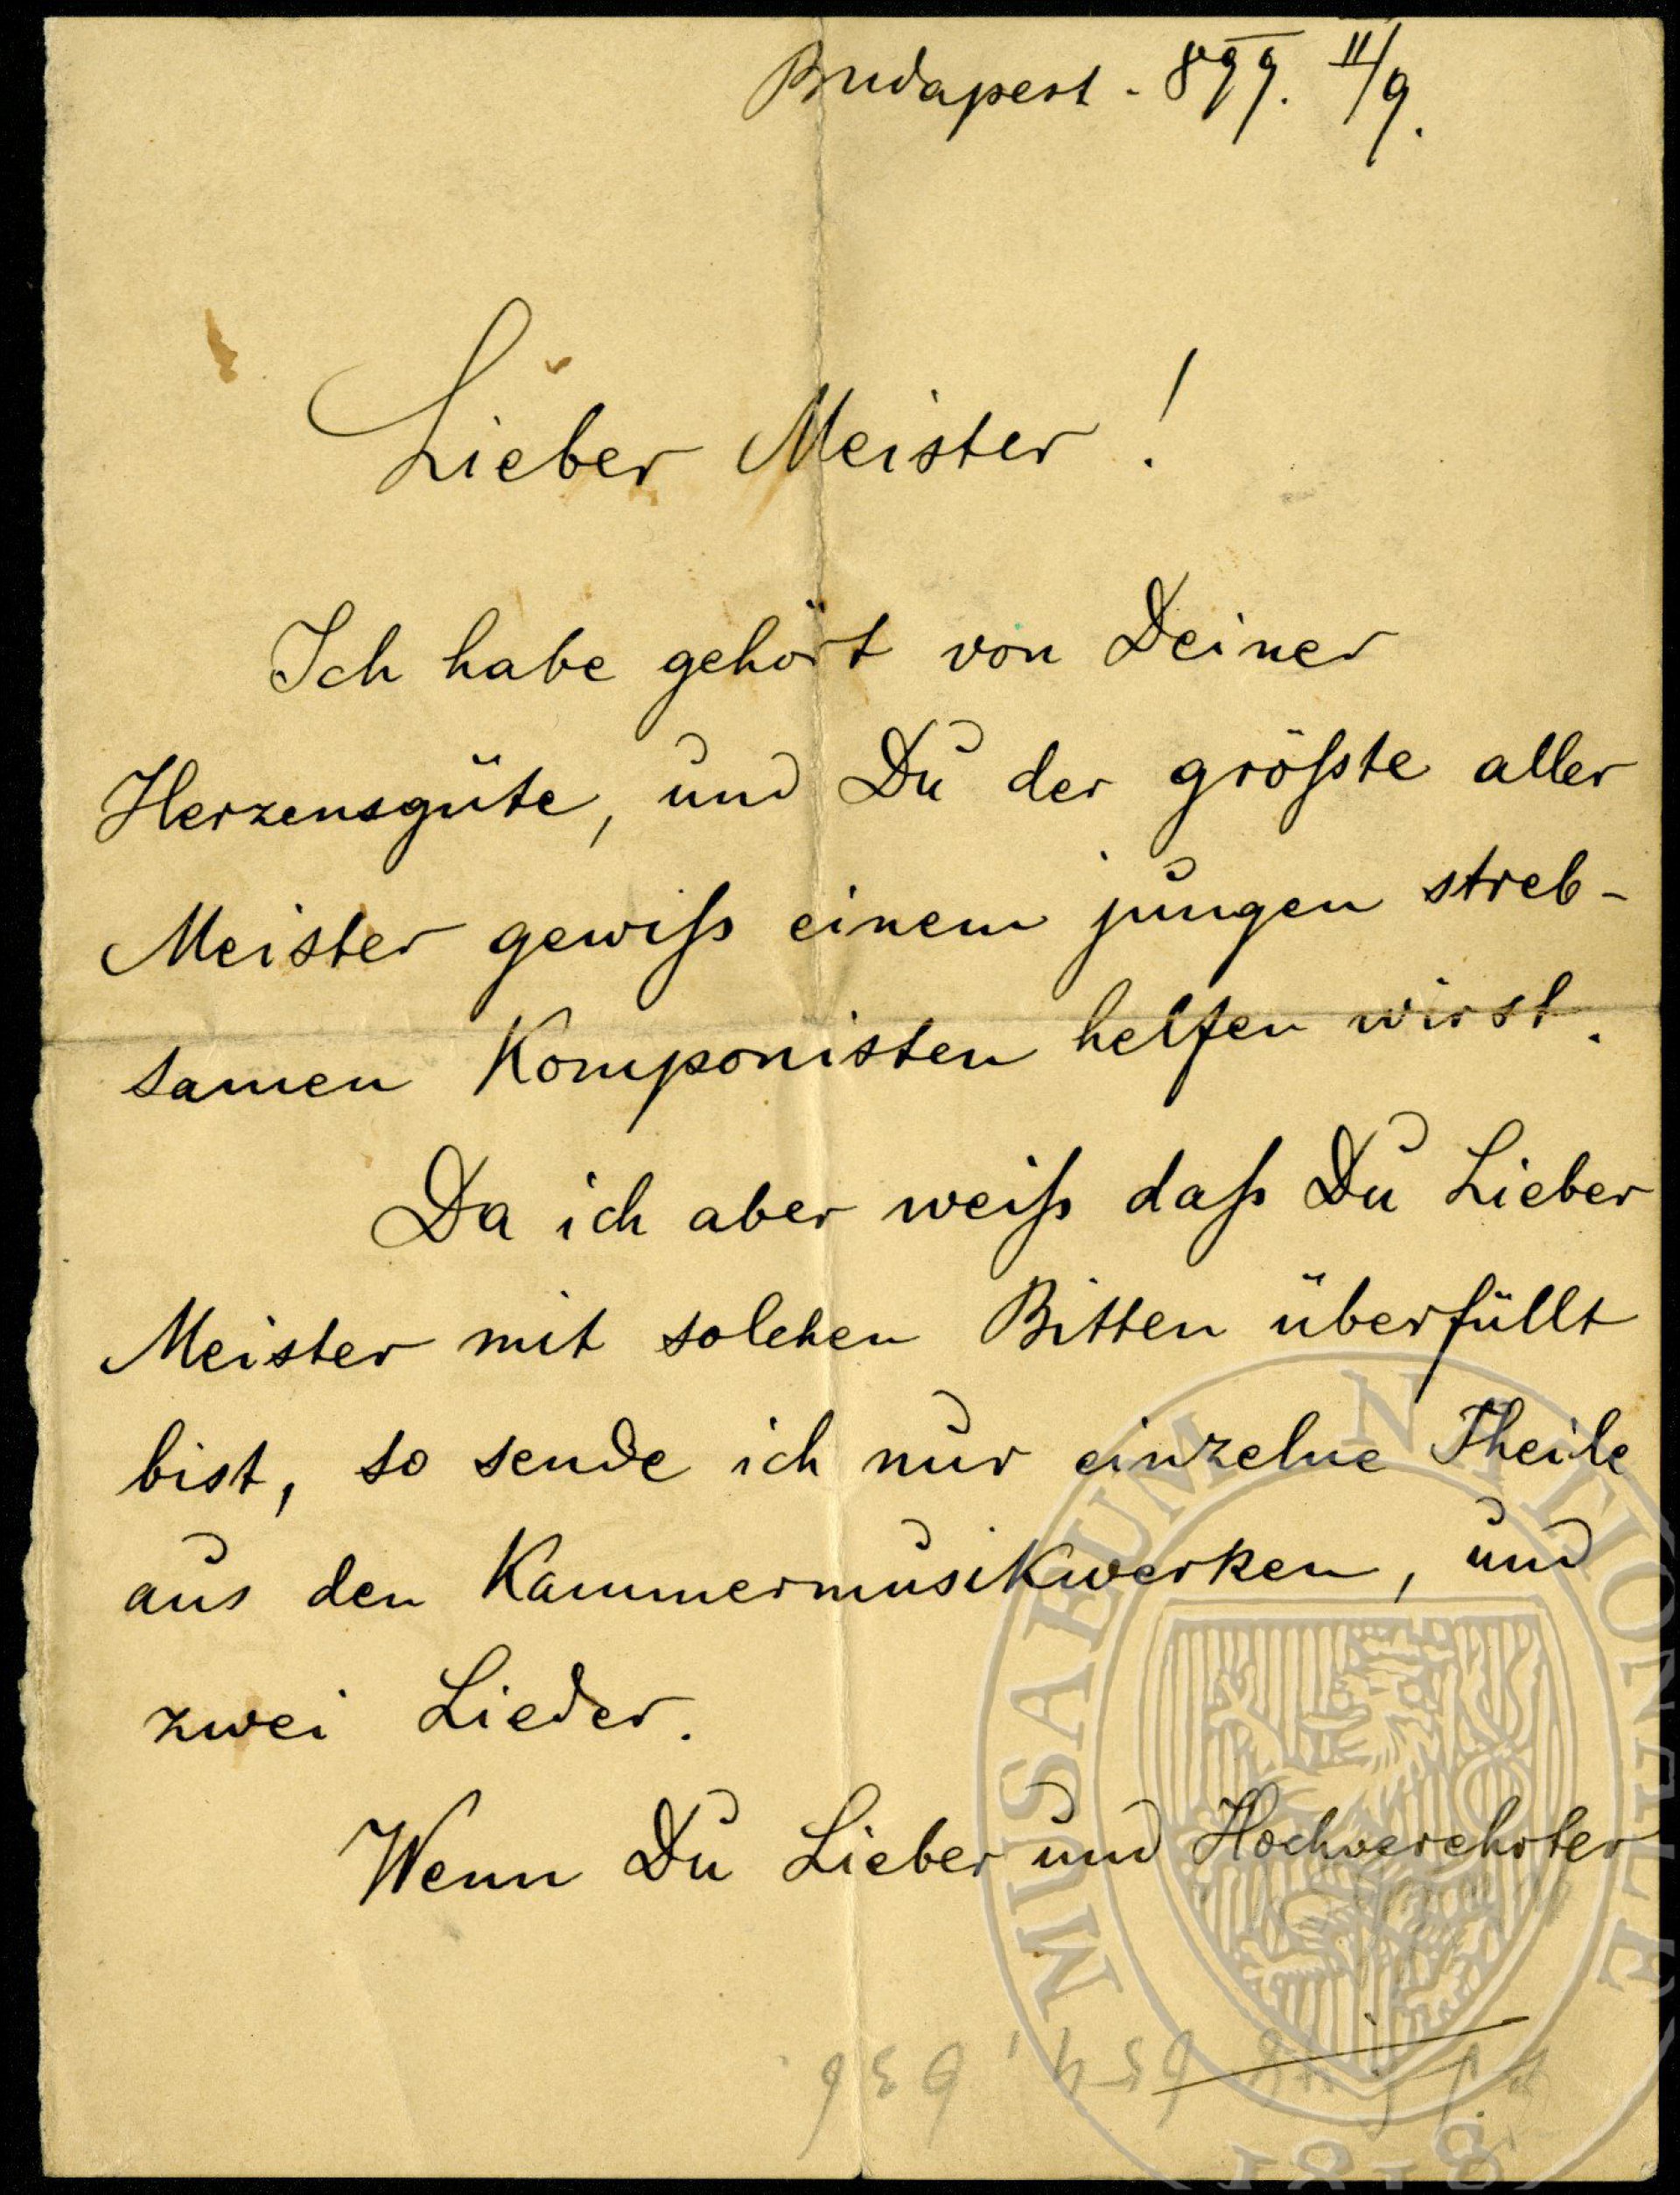 Budapest - 899. II/9.
Lieber Meister!
Ich habe gehört von Deiner
Herzensgüte, und Du der größte aller
Meister gewiß einem jungen streb-
samen Komponisten helfen wirst.
Da ich aber weiß daß Du Lieber
Meister mit solchen Bitten überfüllt
bist, so sende ich nur einzelne Theile
aus den Kammermusikwerken, und
zwei Lieder.
Wenn Du Lieber und Hochverehrter
MUSAEUM NATIONALE
1818